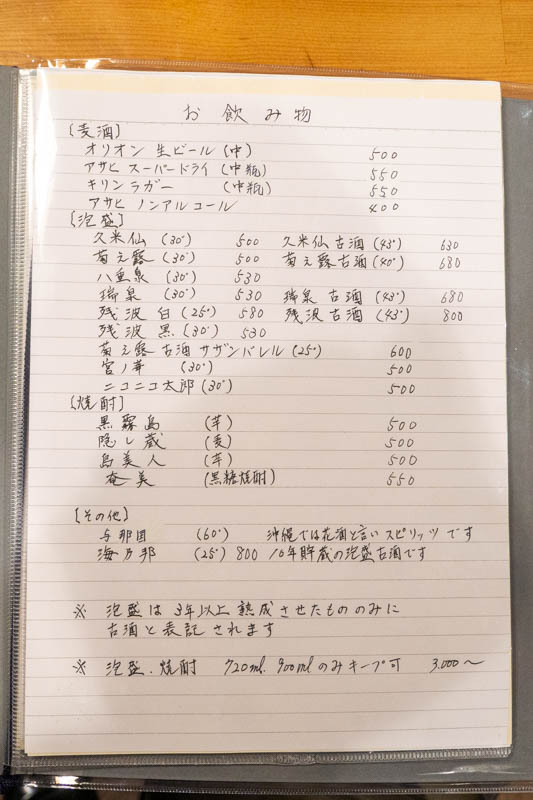 お飲み物
[麦酒]
オリオン 生ビール (中) 500
アサヒ スーパードライ (中瓶) 550
キリン ラガー (中瓶) 550
アサヒ ノンアルコール 400
[泡盛]
久米仙 (30°) 500 久米仙古酒 (43°) 630
菊之露 (30°) 500 菊之露古酒 (40°) 680
八重泉 (30°) 530
瑞泉 (30°) 530 瑞泉古酒 (43°) 680
残波 白 (25°) 580 残波古酒 (43°) 800
残波 黒 (30°) 530
菊之露 古酒 サザンバレル (25°) 600
宮ノ華 (30°) 500
ニコニコ太郎 (30°) 500
[焼酎]
黒霧島 (芋) 500
隠し蔵 (麦) 500
島美人 (芋) 500
奄美 (黒糖焼酎) 550
[その他]
与那国 (60°) 沖縄では花酒と言いスピリッツです
海乃邦 (25°) 800 10年貯蔵の泡盛古酒です
※ 泡盛は 3年以上 熟成させたもののみに
古酒と表記されます
※ 泡盛・焼酎 720ml. 900mlのみキープ可 3.000〜